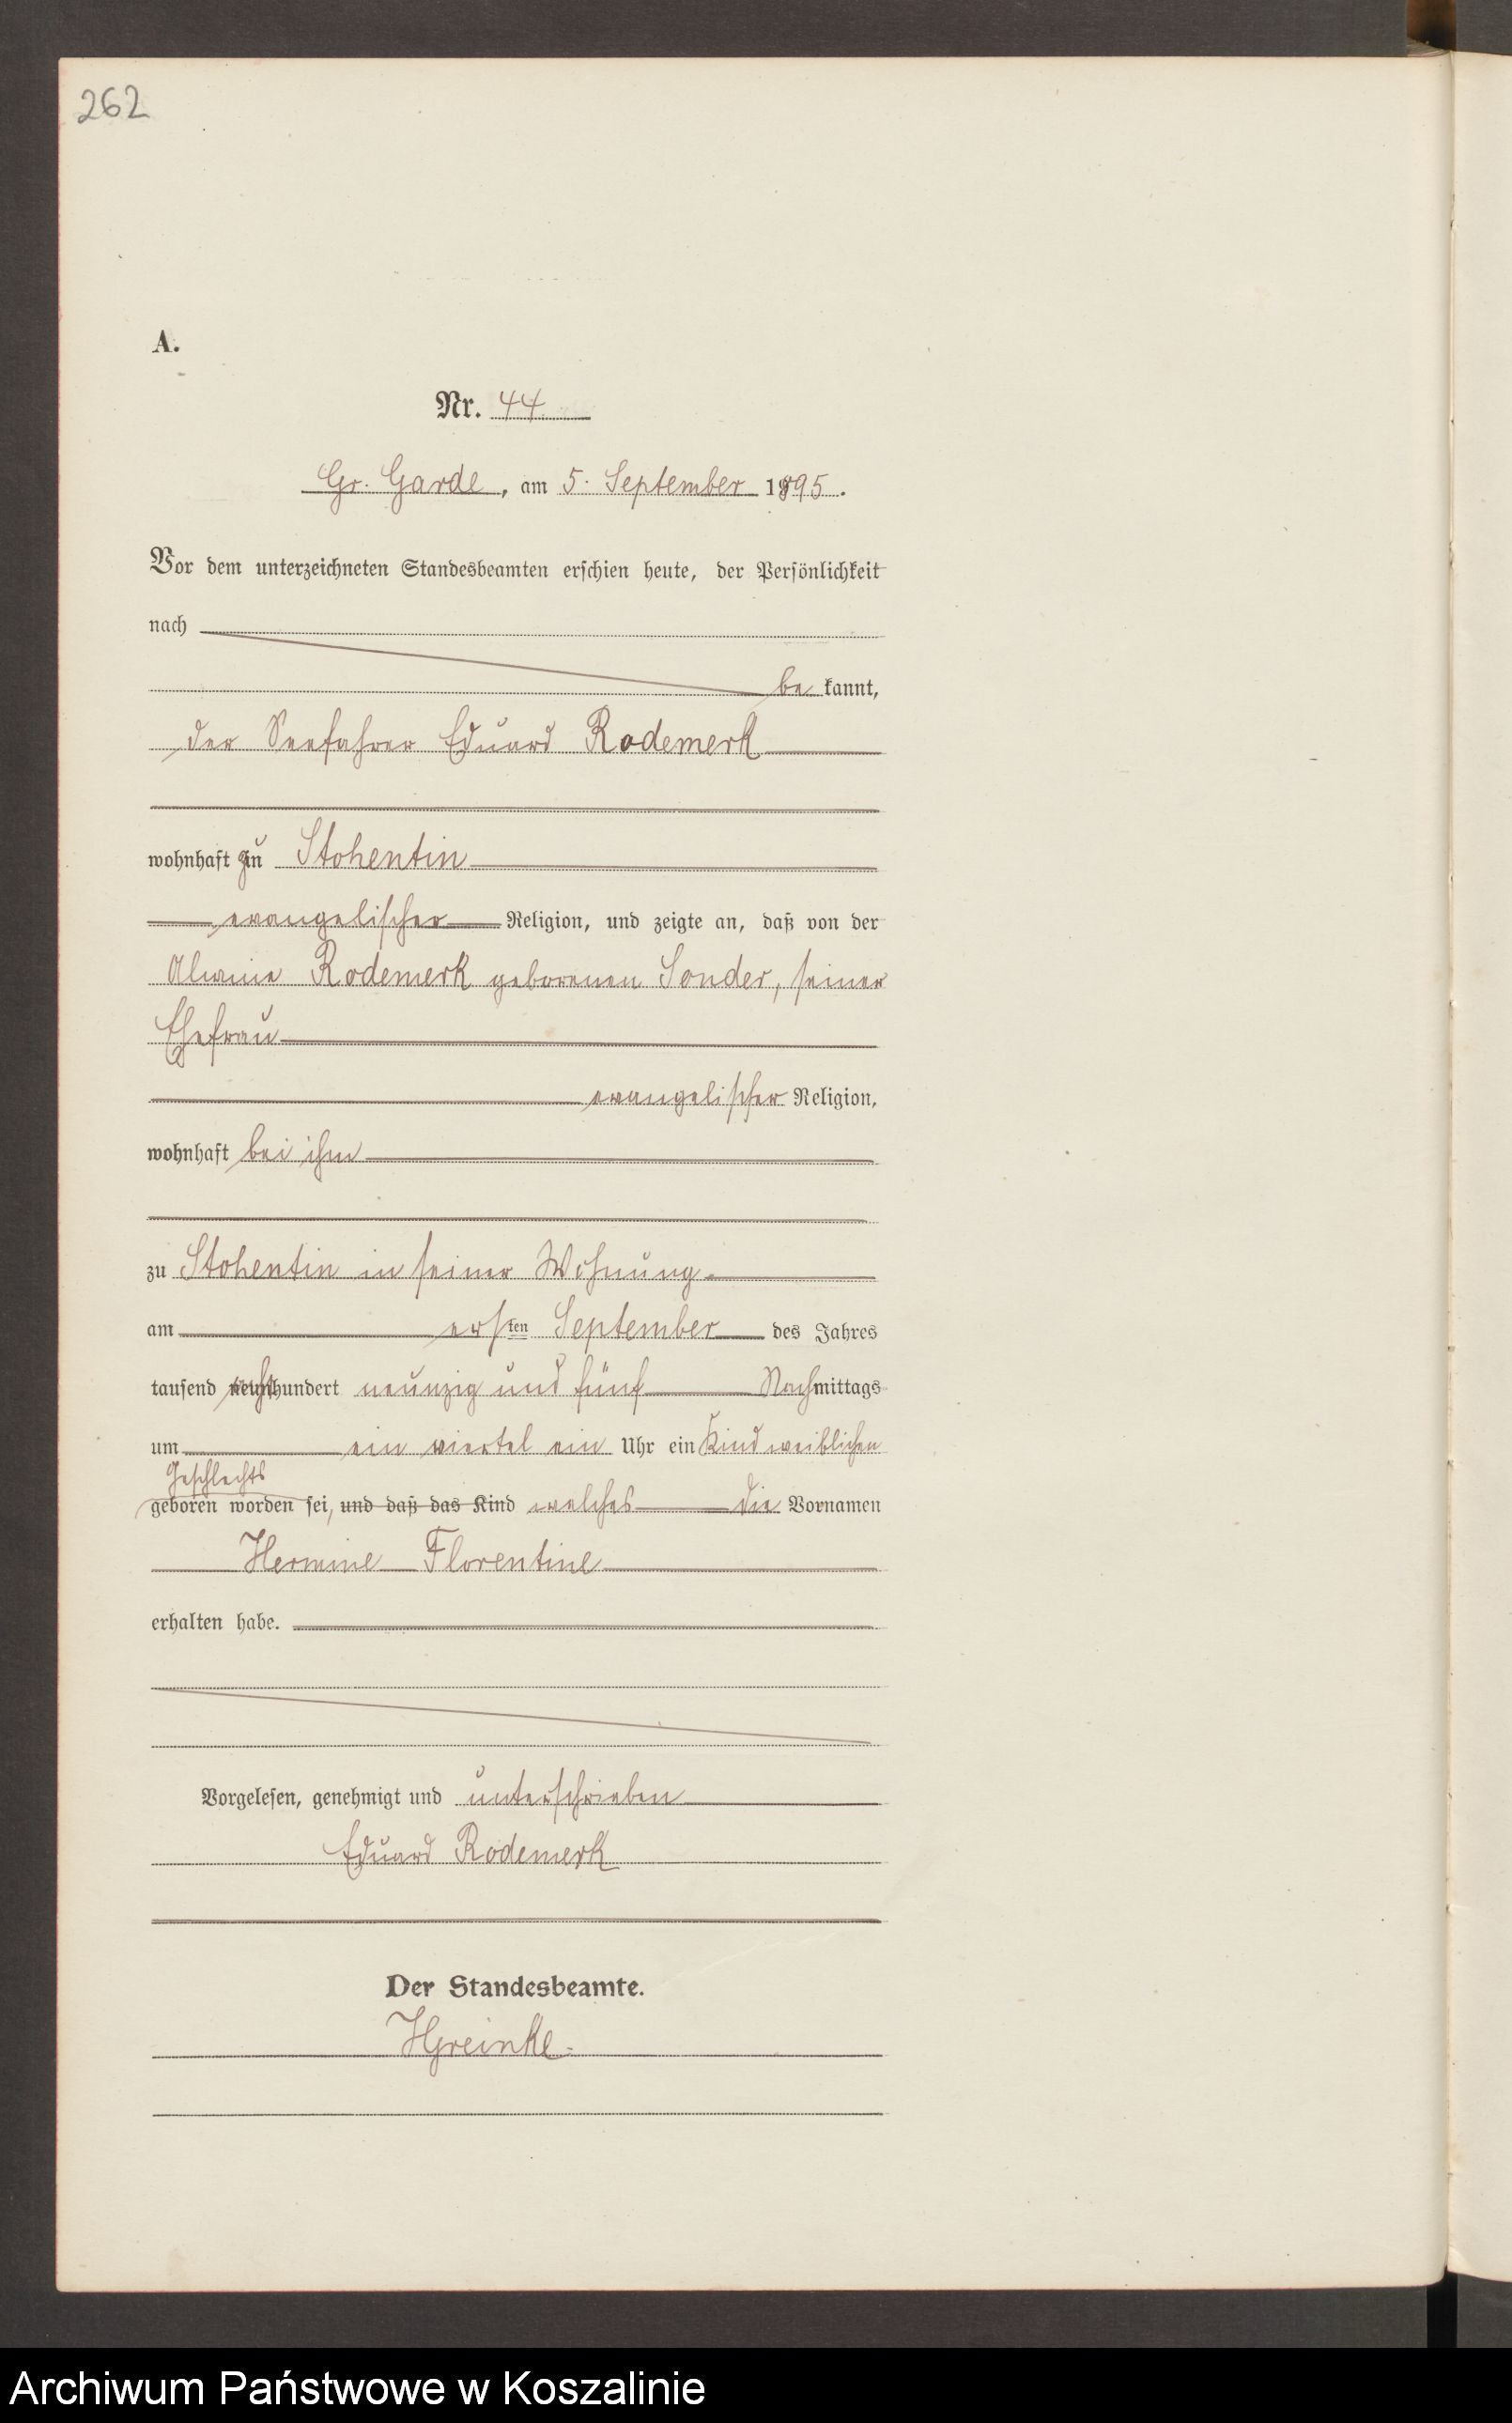 262
A.
Nr. 44
Gr. Garde, am 5. September 1895.
Vor dem unterzeichneten Standesbeamten erschien heute, der Persönlichkeit
nach
be kannt,
der Seefahrer Eduard Rodemerk
wohnhaft zu Stohentin
evangelischer Religion, und zeigte an, daß von der
Alwine Rodemerk geborenen Sonder, seiner
Ehefrau
evangelischer Religion,
wohnhaft bei ihm
zu Stohentin in seiner Wohnung
am ersten September des Jahres
tausend achthundert neunzig und fünf Nachmittags
um ein viertel ein Uhr ein Kind weiblichen
Geschlechts
geboren worden sei, und daß das Kind welches die Vornamen
Hermine Florentine
erhalten habe.
Vorgelesen, genehmigt und unterschrieben
Eduard Rodemerk
Der Standesbeamte.
HGreinke.
Archiwum Państwowe w Koszalinie